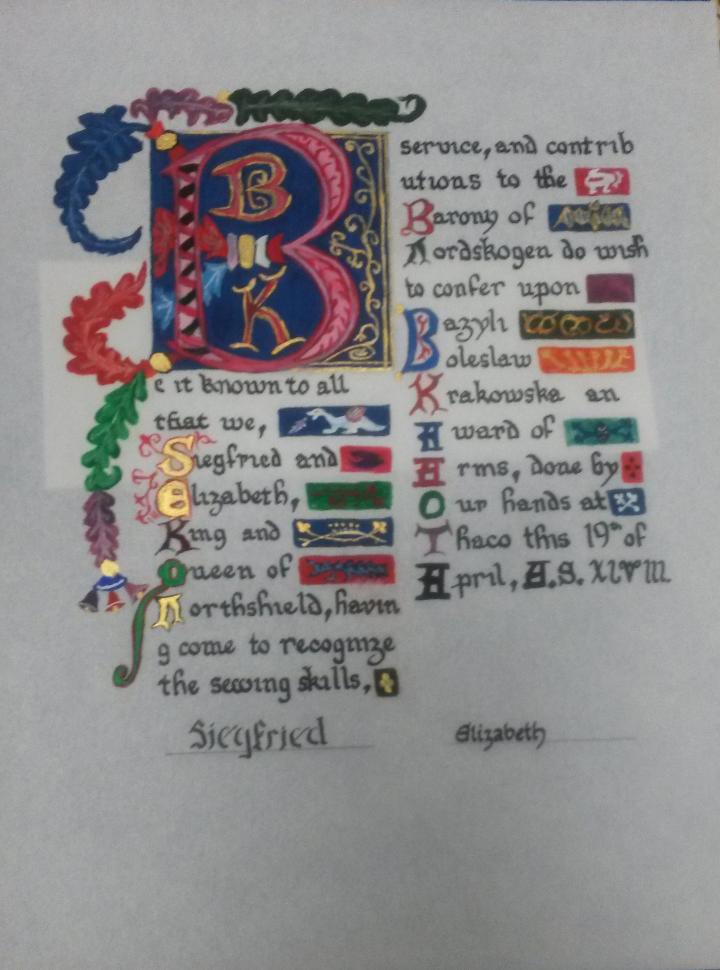 B
B
K
e it known to all
that we,
Siegfried and
Elizabeth,
King and
Queen of
Northshield, havin
g come to recognize
the sewing skills,
service, and contrib
utions to the
Barony of
Nordskogen do wish
to confer upon
Bazyli
Boleslaw
Krakowska an
Award of
Arms, done by
Our hands at
Thaco this 19th of
April, A.S. XLVIII.
Siegfried
Elizabeth